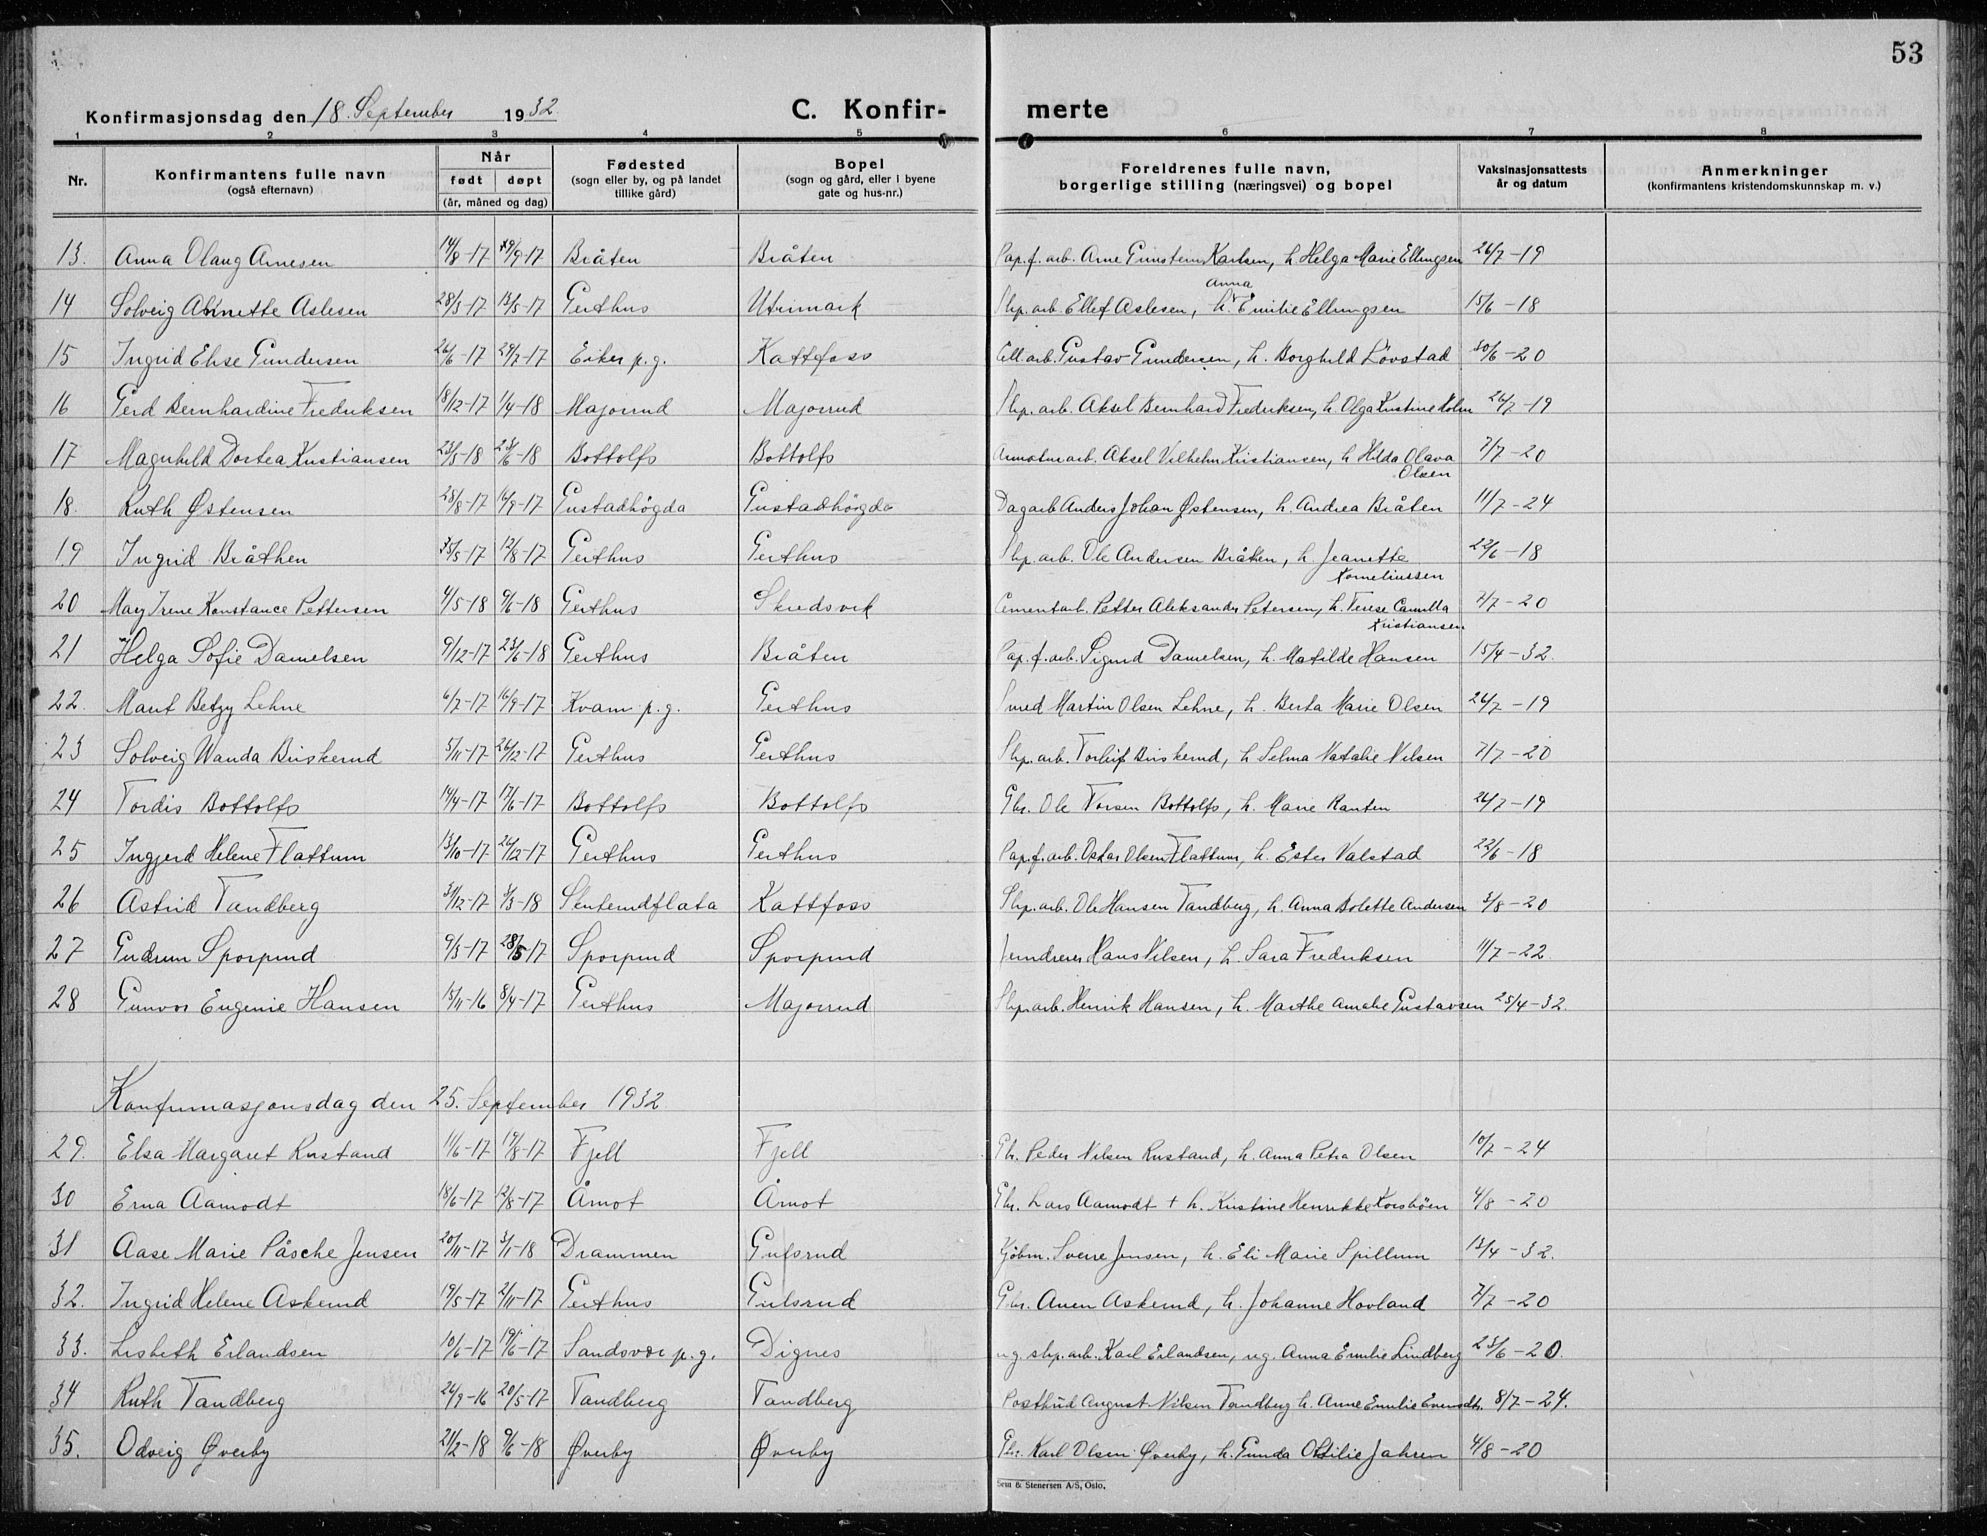 53
Konfirmasjonsdag den 18. September 1932 C. Konfir- merte
1 2 3 4 5 6 7 8
Nr. Konfirmantens fulle navn (også efternavn) Når født døpt (år, måned og dag) Fødested (sogn eller by, og på landet tillike gård) Bopel (sogn og gård, eller i byene gate og hus-nr.) Foreldrenes fulle navn, borgerlige stilling (næringsvei) og bopel Vaksinasjonsattests år og datum Anmerkninger (konfirmantens kristendomskunnskap m. v.)
13. Anna Olaug Arnesen 14/8-17 /9-17 Bråten Bråten Pap.f. arb. Arne Gunstein Karlsen, h. Helga Marie Ellingsen 26/7-19
14 Solveig Annette Aslesen 28/3-17 13/5-17 Gerthus Utrimark Slip. arb. Ellef Aslesen, h. Anna Emilie Ellingsen 15/6-18
15 Ingrid Elise Gundersen 26/6-17 29/7-17 Eiker p.g. Kattfoss Cell arb. Gustav Gundersen, h. Borghild Lövstad 30/6-20
16 Gerd Bernhardine Fredriksen 18/12-17 1/4-18 Majorud Majorud Slip. arb. Aksel Bernhard Fredriksen, h. Olga Kristine Holm 26/7-19
17 Magnhild Dortea Kristiansen 23/5-18 23/6-18 Bottolfs Bottolfs arb. Aksel Vilhelm Kristiansen, h. Hilda Olava Olsen 7/7-20
18. Ruth Østensen 28/8-17 16/9-17 Gustadhögda Gustadhögda Dagarb Anders Johan Østensen, h. Andrea Bråten 11/7-24
19. Ingrid Bråthen /5-17 12/8-17 Gerthus Gerthus Slip. arb. Ole Andersen Bråthen, h. Jeanette Korneliussen 22/6-18
20 May Irene Konstance Pettersen 4/5-18 9/6-18 Gerthus Skredsvik Cementarb. Petter Aleksander Petersen, h. Terese Camilla Kristiansen 7/7-20
21 Helga Sofie Danielsen 9/12-17 23/6-18 Gerthus Bråten Pap. f. arb. Sigurd Danielsen, h. Matilde Hansen 15/4-32.
22. Marit Betzy Lehne 6/7-17 16/9-17 Kvam p.g. Gerthus Smed Martin Olsen Lehne, h. Berta Marie Olsen 26/7-19
23 Solveig Wanda Briskerud 5/11-17 26/12-17 Gerthus Gerthus Slip. arb. Torleif Briskerud, h. Selma Natalie Nilsen 7/7-20
24 Tordis Bottolfs 14/4-17 17/6-17 Bottolfs Bottolfs Gbr. Ole Torsen Bottolfs, h. Marie Ranten 26/7-19
25 Ingjerd Helene Flattum 13/10-17 26/12-17 Gerthus Gerthus Pap.f.arb. Oskar Olsen Flattum, h. Ester Valstad 22/6-18
26 Astrid Tandberg 31/12-17 3/3-18 Slenterudflata Kattfoss Slip. arb. Ole Hansen Tandberg, h. Anna Bolette Andersen 3/8-20
27 Gudrun Sporpind 9/3-17 28/5-17 Sporpind Sporpind Hans Nilsen, h. Sara Fredriksen 11/7-22.
28 Gunvor Eugenie Hansen 15/11-16 8/4-17 Gerthus Majorud Slip.arb. Henrik Hansen, h. Marthe Amalie Gustavsen 25/4-32.
Konfirmasjonsdag den 25. September 1932.
29. Elsa Margaret Rustand 11/6-17 19/8-17 Fjell Fjell Gbr. Peder Nilsen Rustand, h. Anna Petra Olsen 10/7-24
30 Erna Aamodt 18/6-17 12/8-17 Åmot Åmot Gbr. Lars Aamodt + h. Kristine Henrikke Korsböen 4/8-20
31 Aase Marie Påsche Jensen 20/11-17 3/1-18 Drammen Gulsrud Kjöbm. Sverre Jensen, h. Eli Marie Spillum 13/4-32.
32. Ingrid Helene Askerud 19/5-17 2/11-17 Gerthus Gulsrud Gbr. Anen Askerud, h. Johanne Hovland 7/7-20
33. Lisbeth Erlandsen 10/6-17 19/6-17 Sandsvær p.g. Dignes ug. slip. arb. Karl Erlandsen, ug. Anna Emilie Lindberg 23/6-20.
34 Ruth Tandberg 24/9-16 20/5-17 Tandberg Tandberg Postbud August Nilsen Tandberg h. Anne Emilie 8/7-24.
35. Odveig Øverby 21/2-18 9/6-18 Øverby Øverby Gbr. Karl Olsen Øverby, h. Gunda Otilie Jahren 4/8-20
Sem & Stenersen A/S, Oslo.